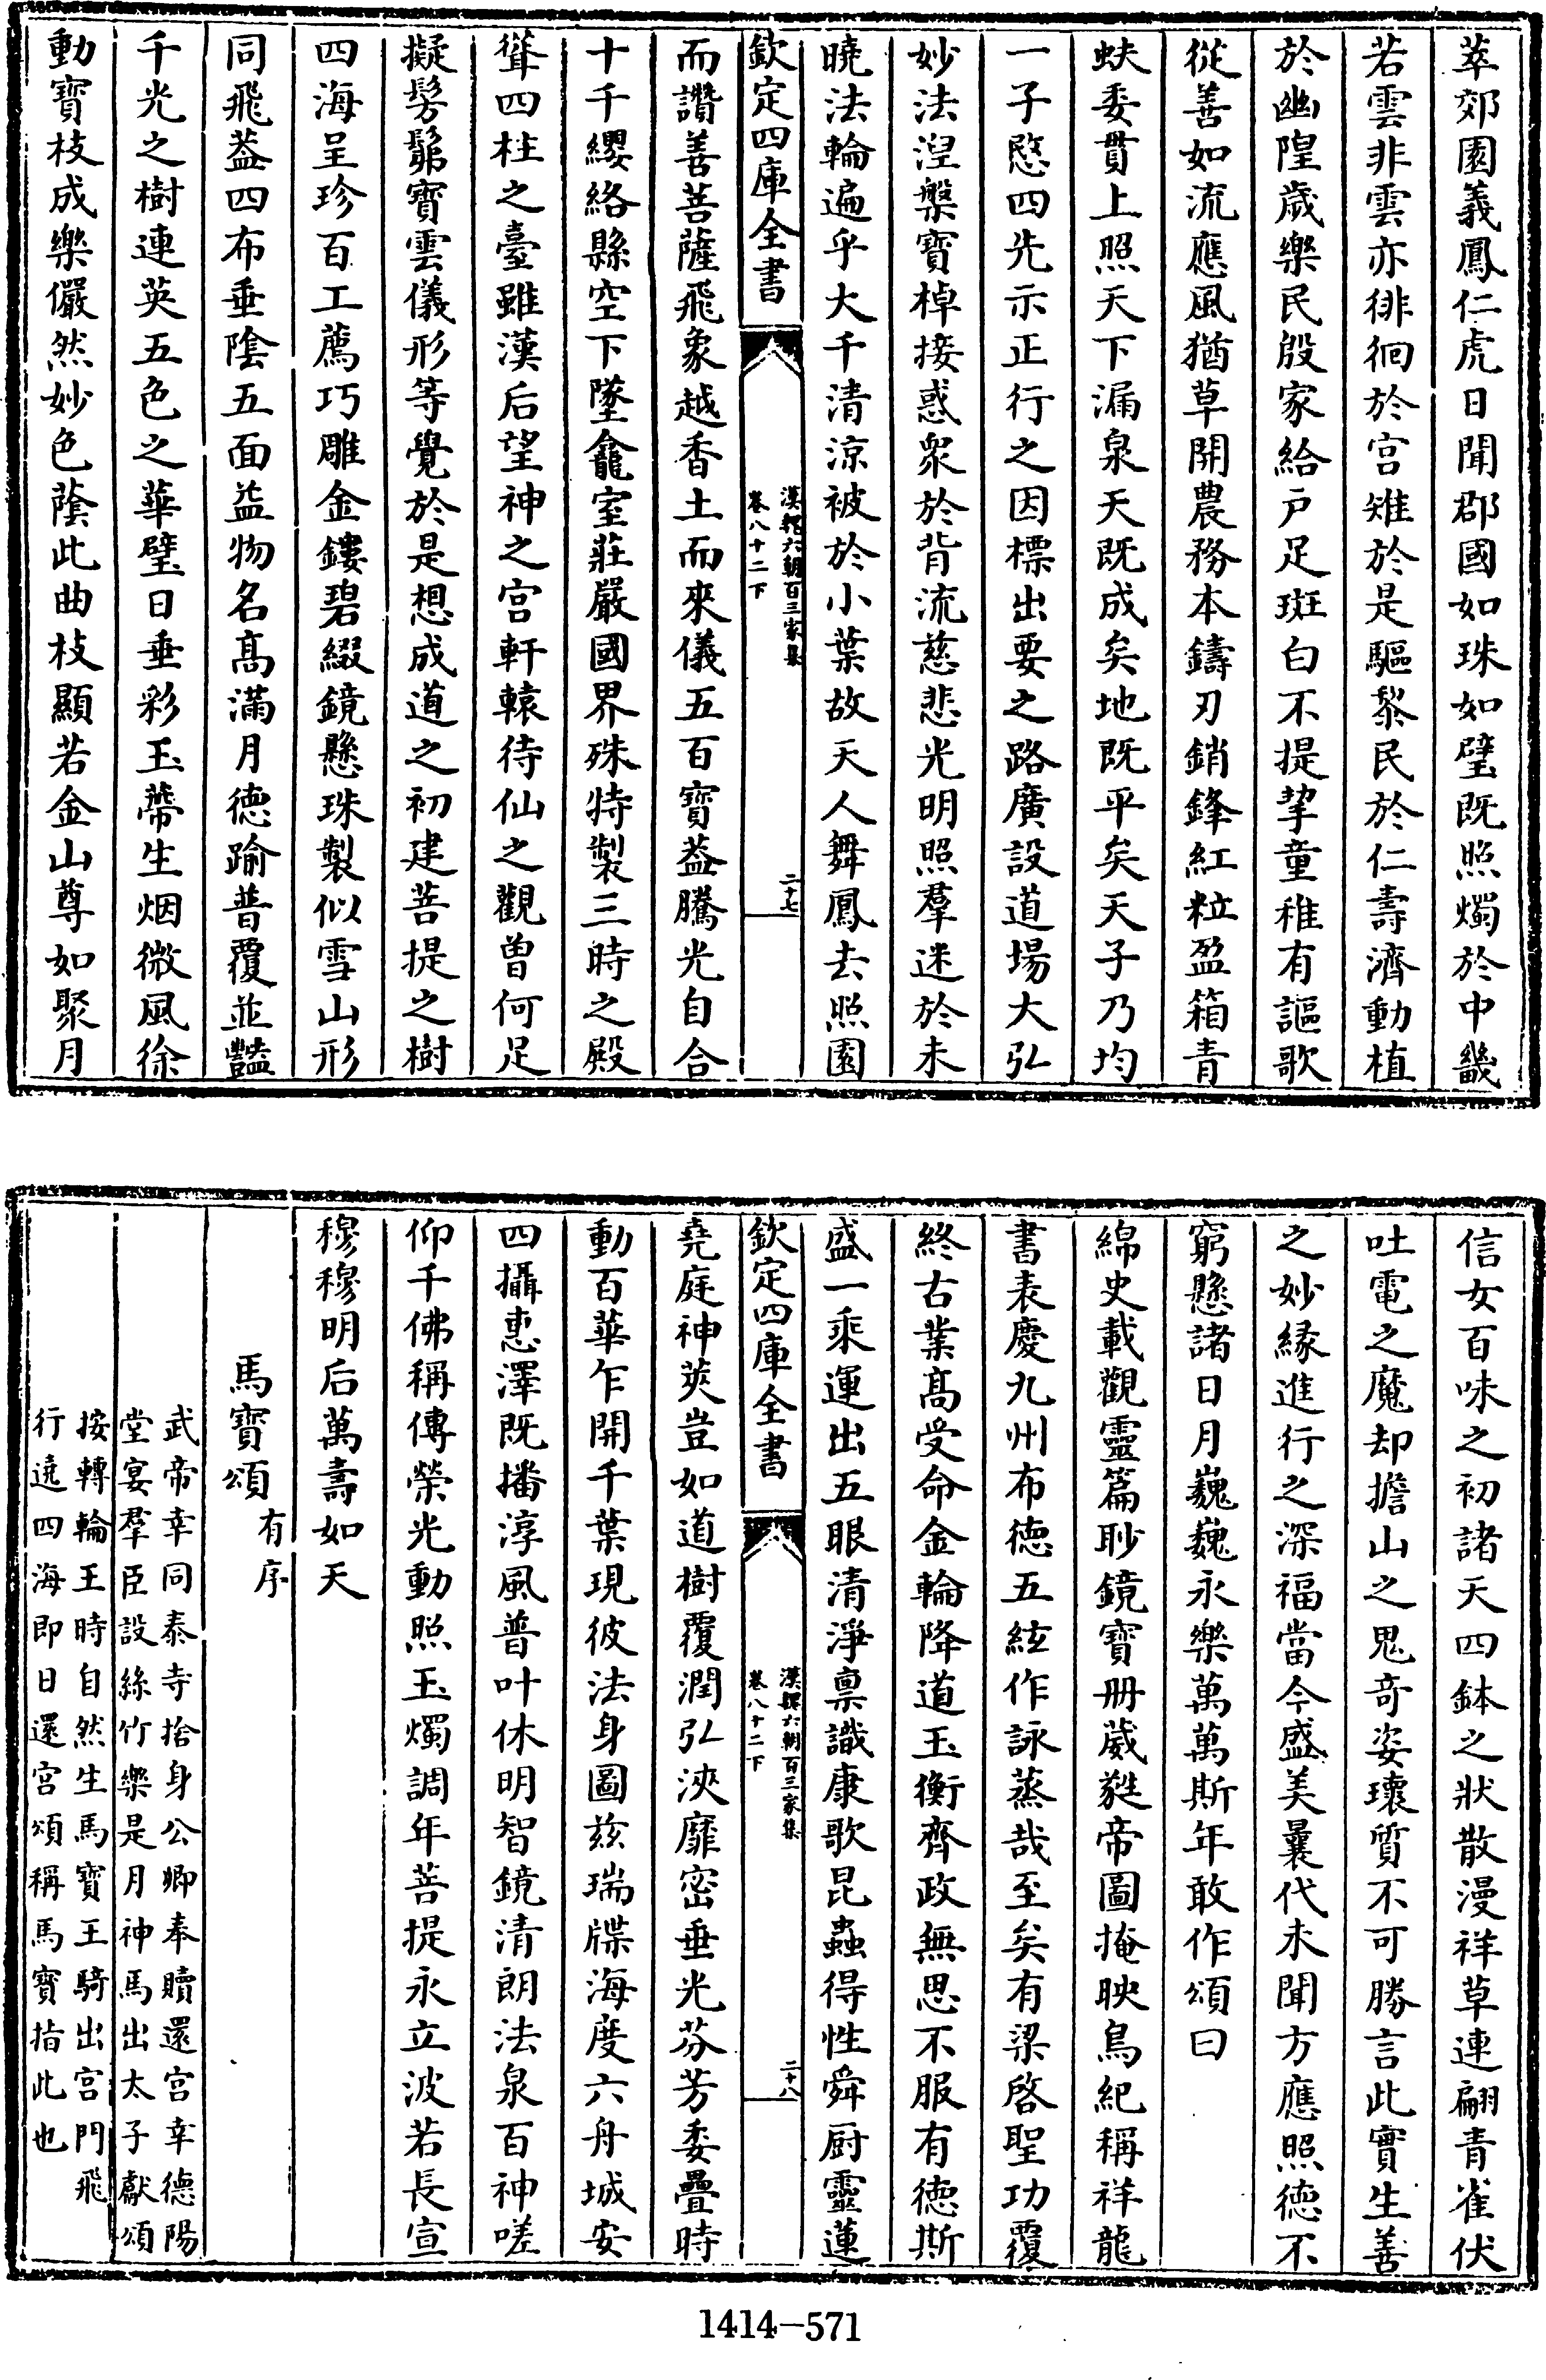 萃郊園義鳳仁虎日聞郡國如珠如璧既照燭於中畿
若雲非雲亦徘徊於宫雉於是驅黎民於仁壽濟動植
於幽隍歳樂民殷家給户足斑白不提挈童稚有謳歌
從善如流應風猶草開農務本鑄刃銷鋒紅粒盈箱青
蚨委貫上照天下漏泉天既成矣地既平矣天子乃均
一子愍四先示正行之因標出要之路廣設道場大弘
妙法湼槃寶棹接惑衆於背流慈悲光明照羣迷於未
曉法輪遍乎大千清涼被於小葉故天人舞鳳去照園
欽定四庫全書
漢魏六朝百三家集
卷八十二下
二十七
而讚善菩薩飛象越香土而來儀五百寶葢騰光自合
十千纓絡縣空下墜龕室莊嚴國界殊特製三時之殿
聳四柱之臺雖漢后望神之宫軒轅待仙之觀曾何足
擬髣髴寶雲儀形等覺於是想成道之初建菩提之樹
四海呈珍百工薦巧雕金鏤碧綴鏡懸珠製似雪山形
同飛葢四布垂陰五面益物名髙滿月徳踰普覆並豔
千光之樹連英五色之華璧日垂彩玉蔕生烟微風徐
動寶枝成樂儼然妙色蔭此曲枝顯若金山尊如聚月
信女百味之初諸天四鉢之狀散漫祥草連翩青雀伏
吐電之魔却擔山之鬼竒姿瓌質不可勝言此實生善
之妙縁進行之深福當今盛美曩代未聞方應照徳不
窮懸諸日月巍巍永樂萬萬斯年敢作頌曰
綿史載觀靈篇眇鏡寶册葳蕤帝圖掩映鳥紀稱祥龍
書表慶九州布徳五絃作詠蒸哉至矣有梁啓聖功覆
終古業髙受命金輪降道玉衡齊政無思不服有徳斯
盛一乘運出五眼清淨禀識康歌昆蟲得性舜厨靈蓮
欽定四庫全書
漢魏六朝百三家集
卷八十二下
二十八
堯庭神莢豈如道樹覆潤弘浹靡密垂光芬芳委疊時
動百華乍開千葉現彼法身圖兹瑞牒海度六舟城安
四攝惠澤既播淳風普叶休明智鏡清朗法泉百神嗟
仰千佛稱傳榮光動照玉燭調年菩提永立波若長宣
穆穆明后萬壽如天
馬寶頌有序
武帝幸同泰寺捨身公卿奉贖還宫幸德陽
堂宴羣臣設絲竹樂是月神馬出太子獻頌
按轉輪王時自然生馬寶王騎出宫門飛
行遶四海即日還宫頌稱馬寶指此也
1414-571